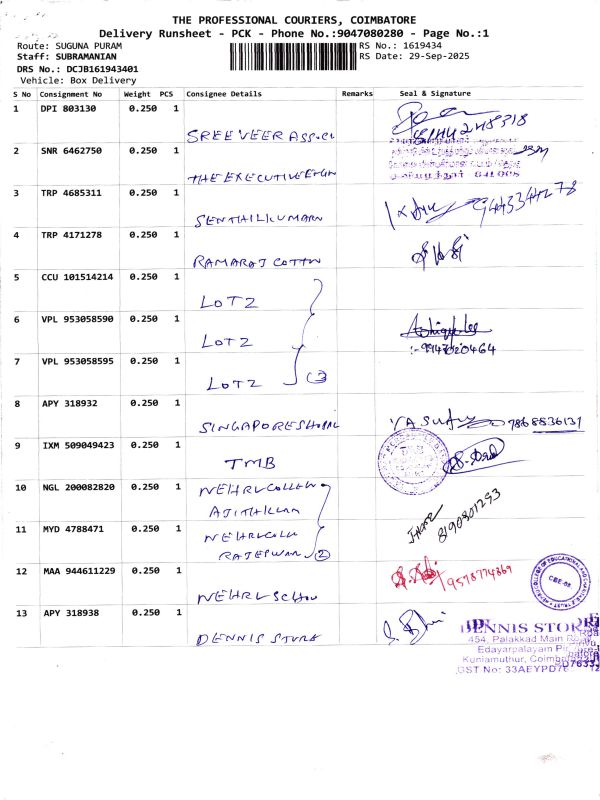 THE PROFESSIONAL COURIERS, COIMBATORE
Delivery Runsheet - PCK - Phone No.:9047080280 - Page No.:1
Route: SUGUNA PURAM
RS No.: 1619434
Staff: SUBRAMANIAN
RS Date: 29-Sep-2025
DRS No.: DCJB161943401
Vehicle: Box Delivery
S No Consignment No Weight PCS Consignee Details Remarks Seal & Signature
1 DPI 803130 0.250 1
SREEVEER ASSOCI
2 SNR 6462750 0.250 1
THE EXECUTIVE ENGN
3 TRP 4685311 0.250 1
SENTHILKUMARN
4 TRP 4171278 0.250 1
RAMARAJ COTTON
5 CCU 101514214 0.250 1
LOTZ
6 VPL 953058590 0.250 1
LOTZ
:-9947020464
7 VPL 953058595 0.250 1
LOTZ 3
8 APY 318932 0.250 1
SINGAPORE 7868836131
9 IXM 509049423 0.250 1
TMB
10 NGL 200082820 0.250 1 NEHRU COLLEG
AJITHKUMAR
11 MYD 4788471 0.250 1
NEHRU COLLE
8190801293
RAJESWARI 2
12 MAA 944611229 0.250 1
9578774869
NEHRU SCHOO
CBE-08
13 APY 318938 0.250 1
DENNIS STORE
DENNIS STORE
454, Palakkad Main Road
Edayarpalayam
Kuniamuthur, Coimbatore
GST No: 33AEYPD76